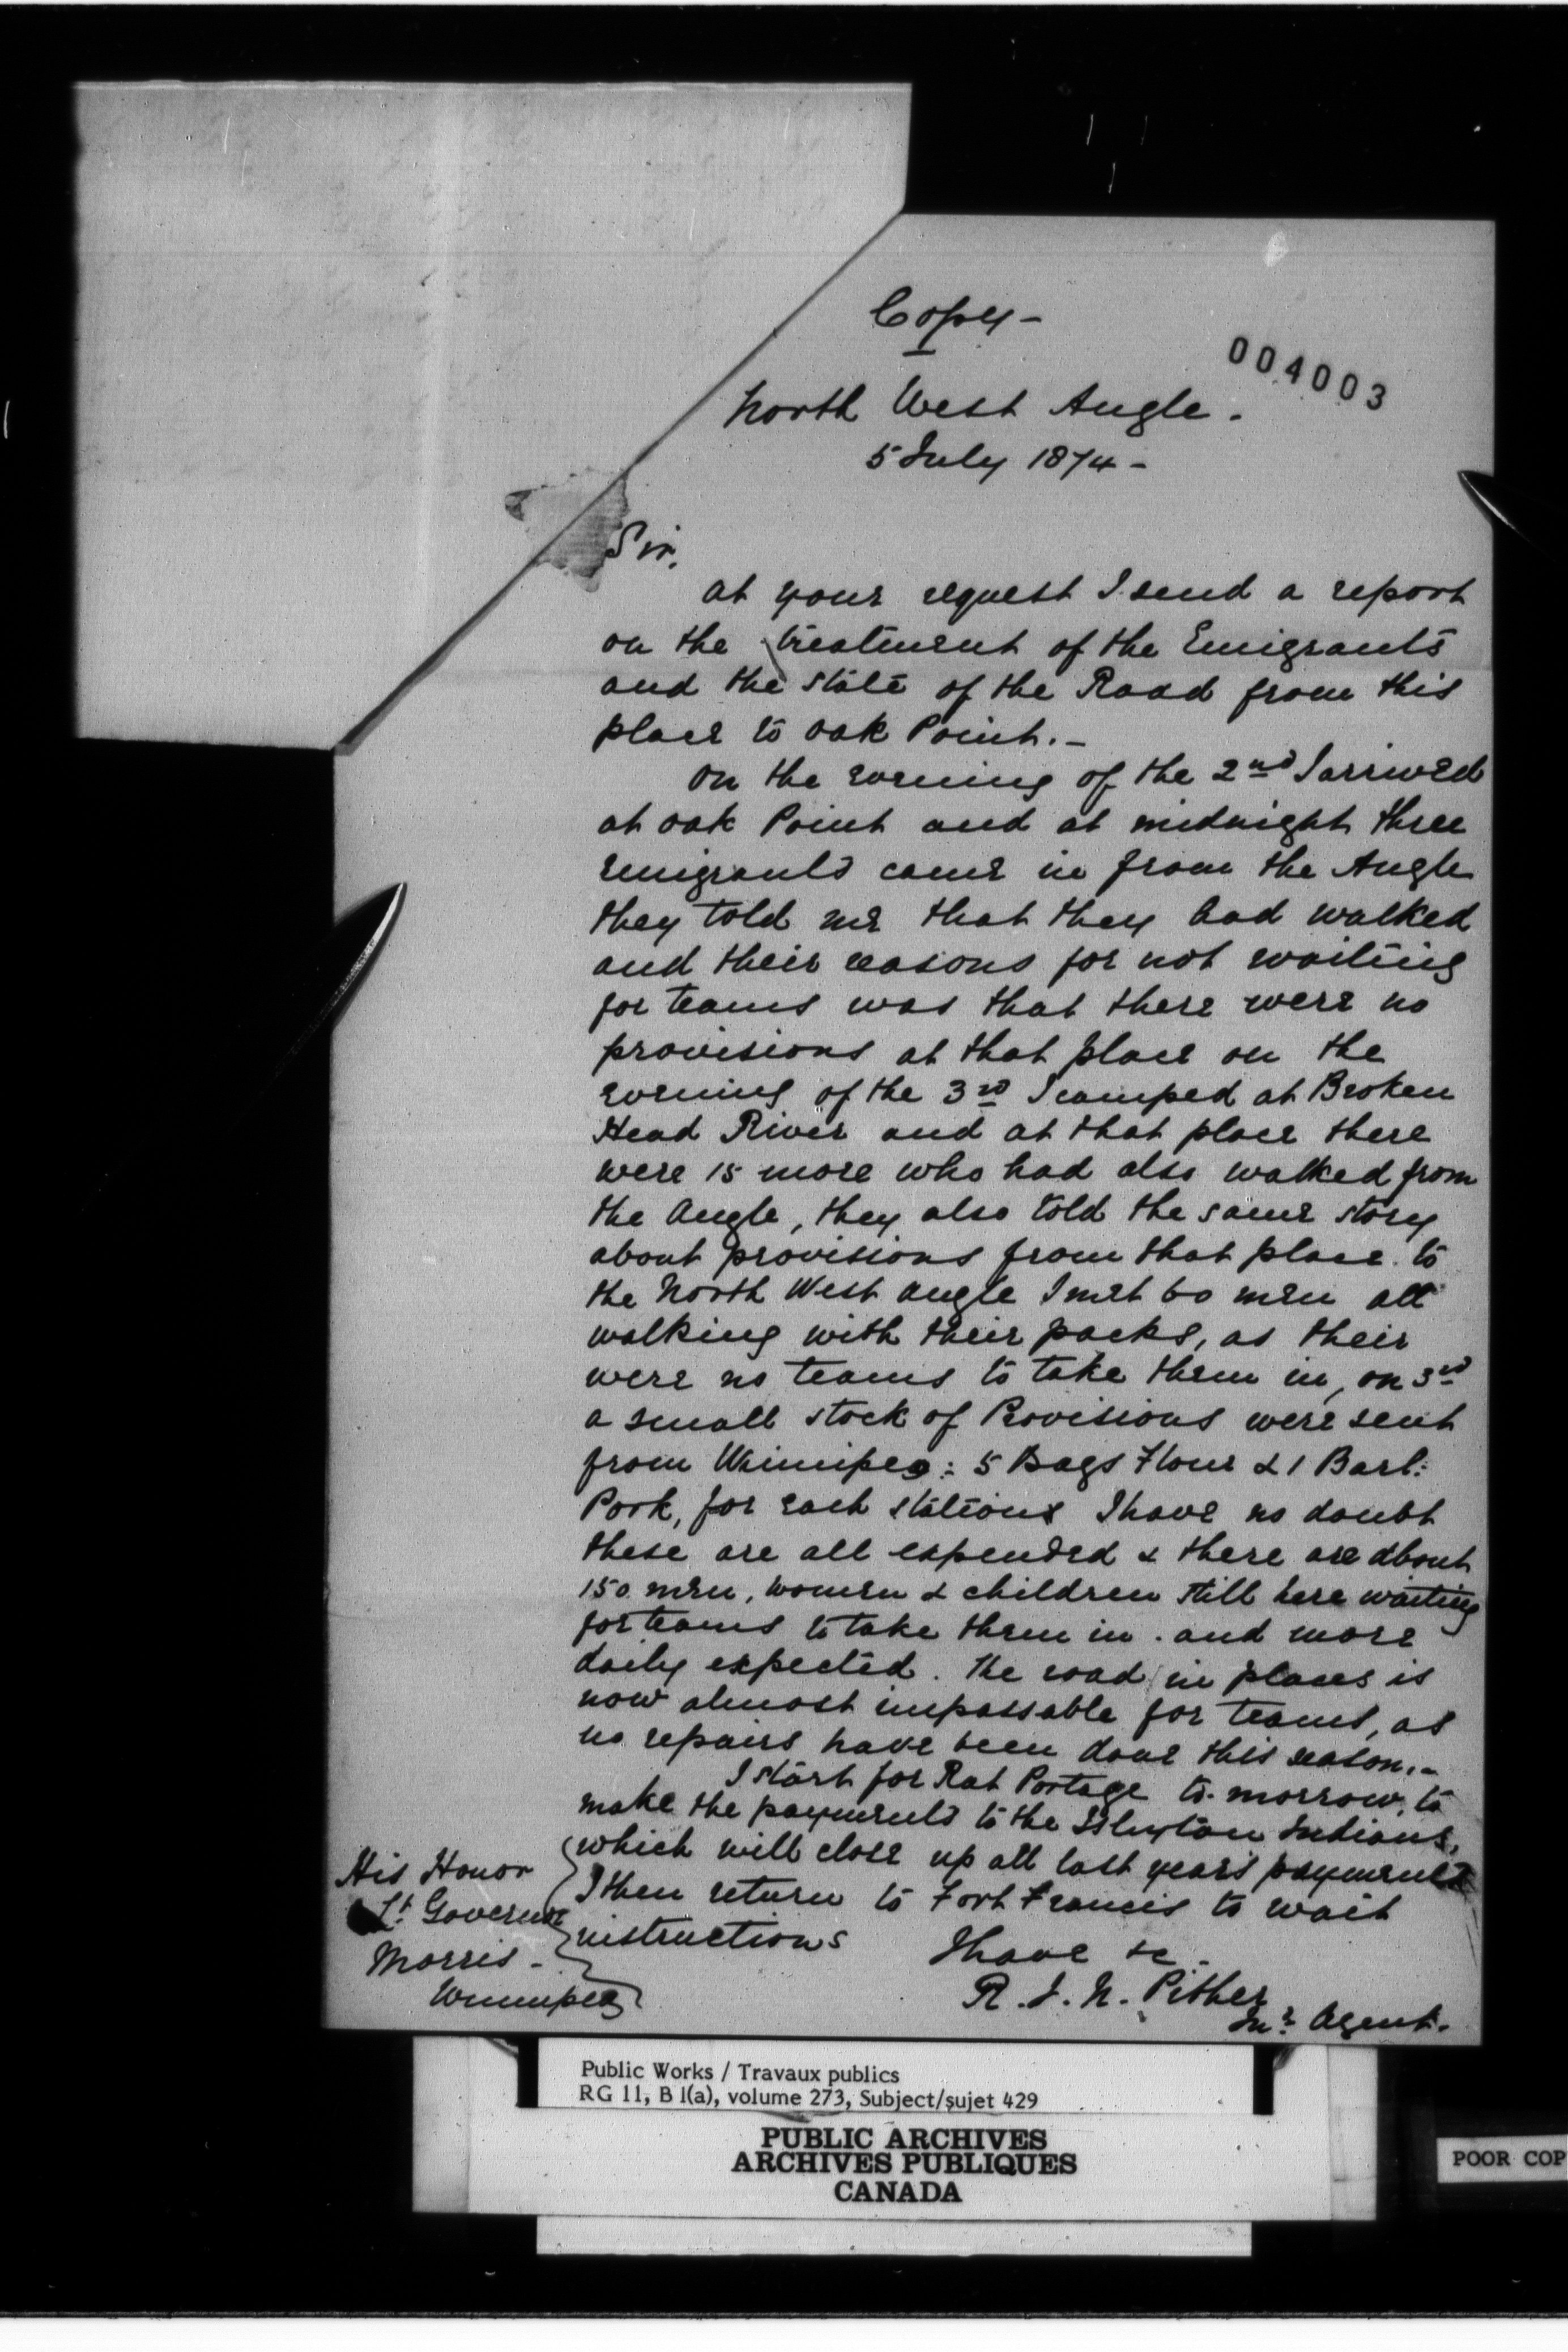 Copy -
004003
North West Angle -
5 July 1874 -
Sir,
at your request I send a report
on the treatment of the Emigrants
and the state of the Road from this
place to Oak Point. -
On the evening of the 2nd I arrived
at Oak Point and at midnight three
emigrants came in from the Angle
they told me that they had walked
and their reasons for not waiting
for teams was that there were no
provisions at that place on the
evening of the 3rd I camped at Broken
Head River and at that place there
were 15 more who had also walked from
the Angle, they also told the same story
about provisions from that place to
the North West Angle I met 60 men all
walking with their packs, as their
were no teams to take them in, on 3rd
a small stock of Provisions were sent
from Winnipeg: 5 Bags Flour & 1 Barl:
Pork, for each stations I have no doubt
these are all expended & there are about
150 men, women & children still here waiting
for teams to take them in . and more
daily expected. The road in places is
now almost impassable for teams, as
no repairs have been done this season. -
I start for Rat Portage to-morrow, to
make the payments to the Indians,
which will close up all last years payments
I then return to Fort Francis to wait
instructions
I have &c -
R. J. N. Pither
Agent -
His Honor
Lt Governor
Morris -
Winnipeg
Public Works / Travaux publics
RG 11, B 1(a), volume 273, Subject/sujet 429
PUBLIC ARCHIVES
ARCHIVES PUBLIQUES
CANADA
POOR COP